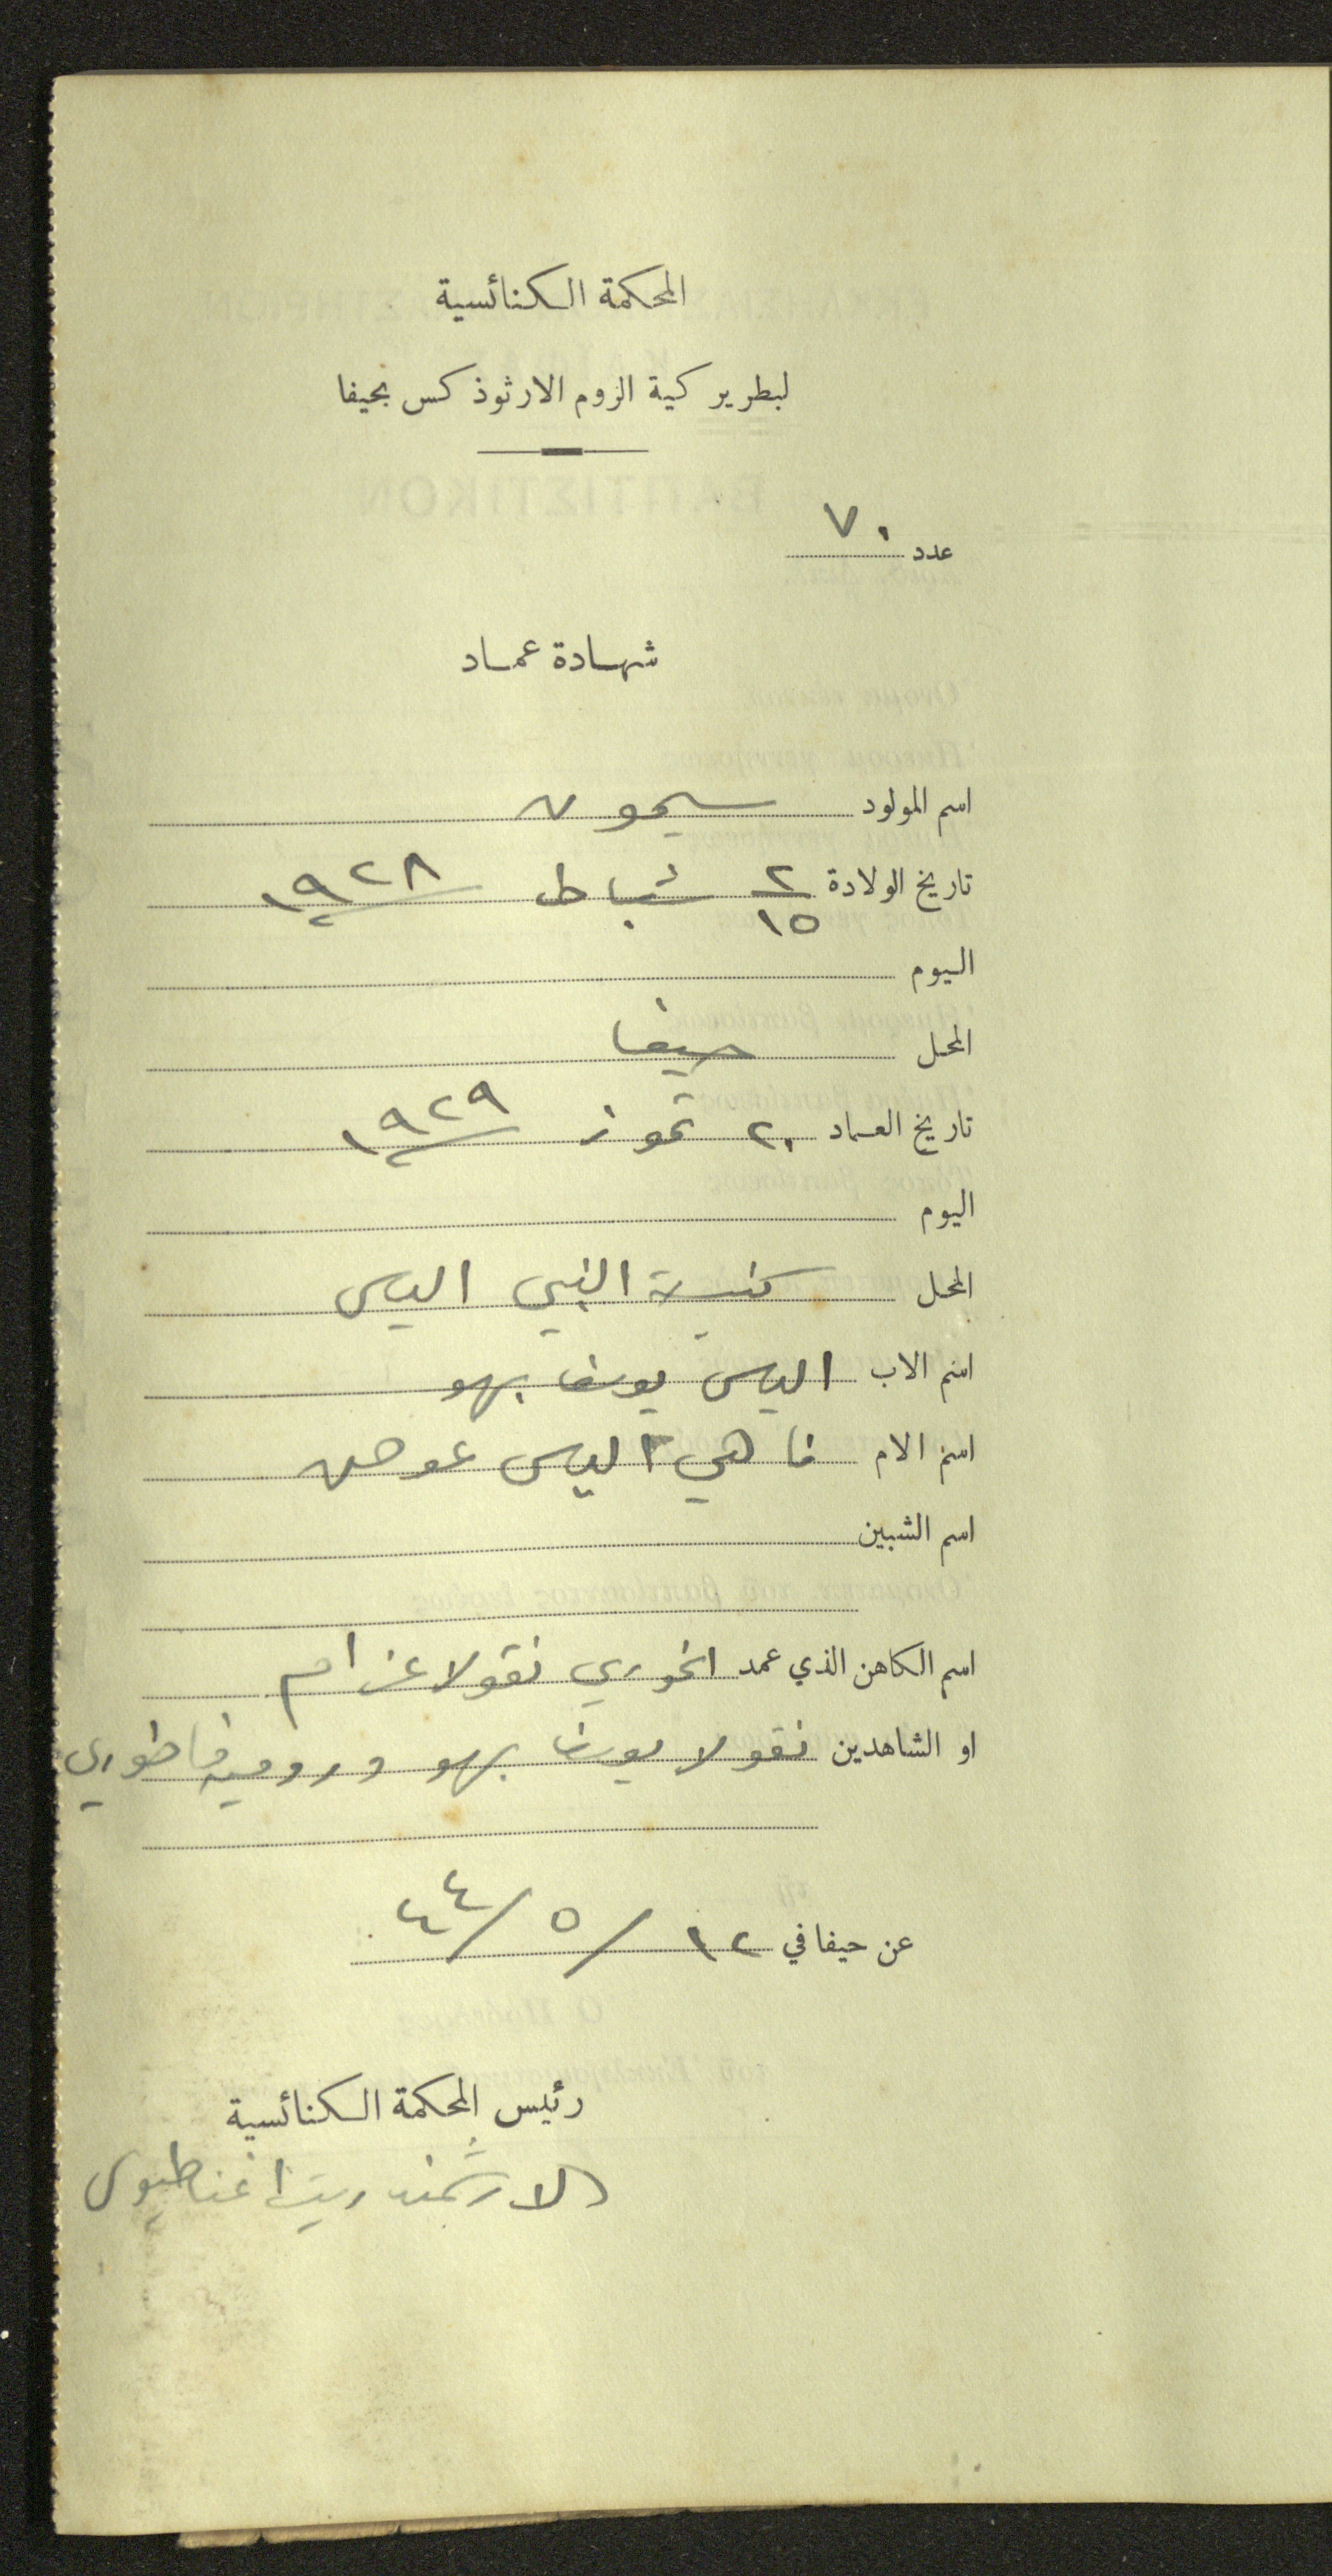 المحكمة الكنائسية
لبطريركية الروم الارثوذكس بحيفا
عدد ٧٠
شهادة عماد
اسم المولود سيمون
تاريخ الولادة ٢/١٥ شباط ١٩٢٨
اليوم
المحل حيفا
تاريخ العماد ٢٠ تموز ١٩٢٩
اليوم
المحل كنيسة النبي الياس
اسم الاب الياس يوسف بهو
اسم الام فاهي الياس عوض
اسم الشبين
اسم الكاهن الذي عمد الخوري نقولا عزام
او الشاهدين نقولا يوسف بهو و
عن حيفا في ١٢/٥/٤٤
رئيس المحكمة الكنائسية
الارشمندريت اغناطيوس